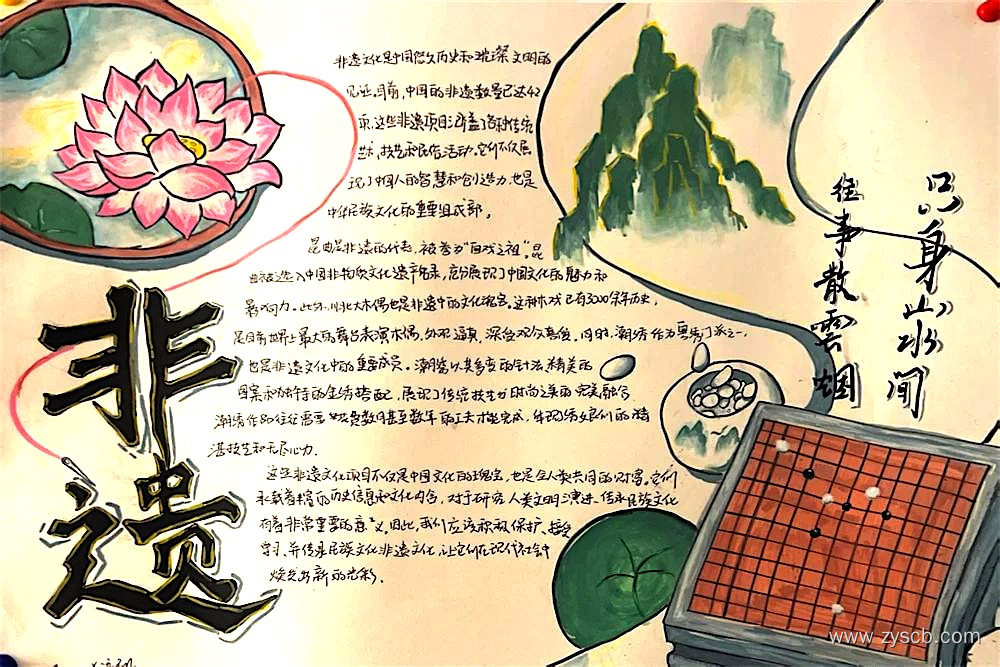 非遗
非遗文化是中国悠久历史和璀璨文明的
见证,目前,中国的非遗数量已达42
项,这些非遗项目涵盖了各种传统
艺术,技艺和民俗活动。它们不仅展
现了中国人的智慧和创造力,也是
中华民族文化的重要组成部。
昆曲是非遗的代表,被誉为“百戏之祖”。昆
曲被选入中国非物质文化遗产名录,充分展现了中国文化的魅力和
影响力。此外,川北大木偶也是非遗中的文化瑰宝。这种木戏已有3000余年历史,
是目前世界上最大的舞台表演木偶,外观逼真,深受观众喜爱,同时,潮绣作为粤绣门派之一,
也是非遗文化中的重要成员。潮绣以其多变的针法、精美的
图案和独特的金绣搭配,展现了传统技艺与时尚之美的完美融合
潮绣作品往往需要花费数月甚至数年的工夫才能完成,体现绣娘们的精
湛技艺和无尽心力.
这些非遗文化项目不仅是中国文化的瑰宝,也是全人类共同的财富。它们
承载着丰富的历史信息和文化内含,对于研究人类文明演进、传承民族文化
有着非常重要的意义。因此,我们应该积极保护、
守习、并传承民族文化非遗文化,让它们在现代社会中
焕发出新的光彩.
只身山水间
往事散雲烟
www.zyscb.com